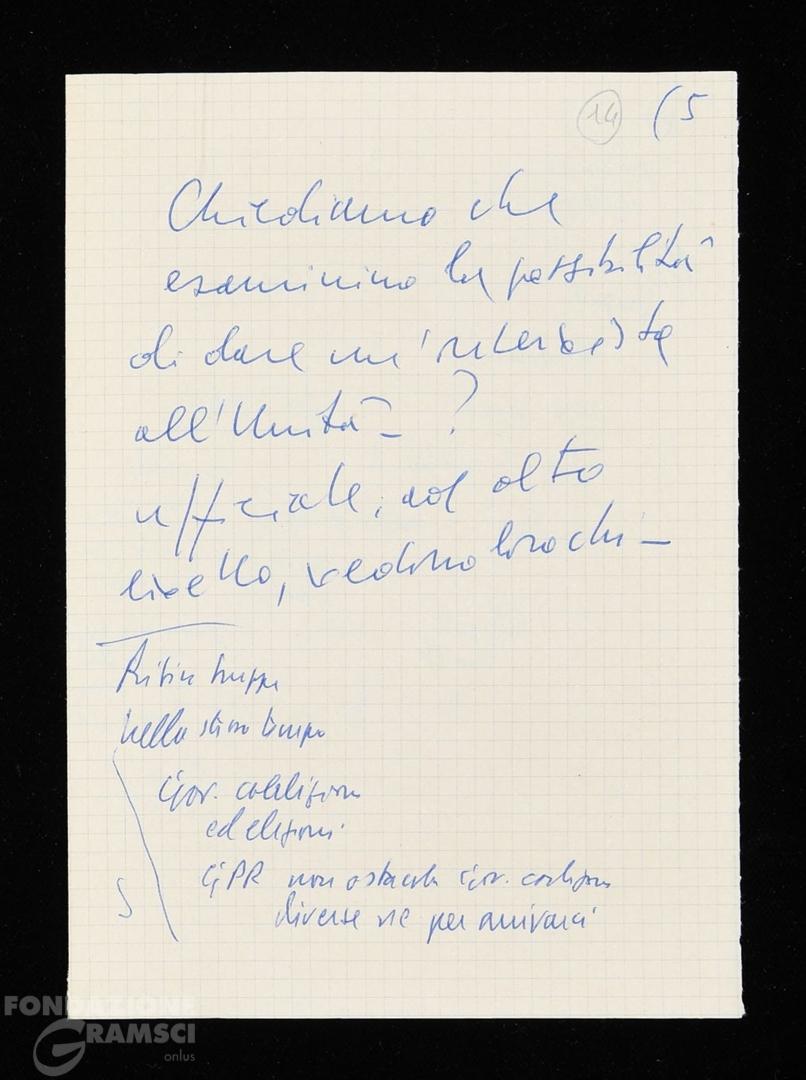 14 (5
Chiediamo che
esaminino la possibilità
di dare un'intervista
all'Unità - ?
ufficiale, ad alto
livello, vedono loro chi -
Ritiro truppe
nello stesso tempo
Gov. coalizione
ed elezioni
GPR non ostacola Gov. coalizione
diverse vie per arrivarci
FONDAZIONE
GRAMSCI
onlus